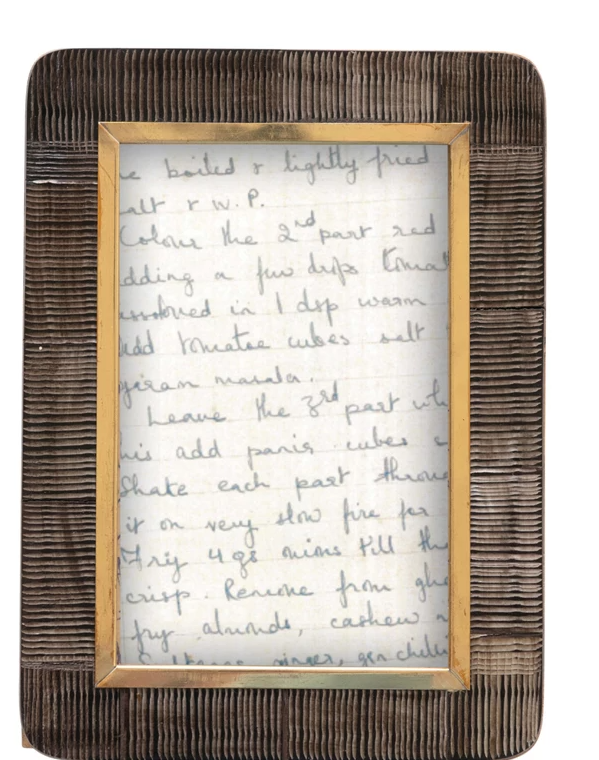 e boiled & lightly fried
alt & w. P.
Colour the 2nd part red
dding a few drps tomat
issolved in 1 dsp warm
add tomatoe cubes salt
garam masala.
Leave the 3rd part wh
his add panir cubes
Shake each part throu
it on very slow fire for
Fry 4 gs onions till th
crisp. Remove from ghe
fry almonds, cashew n
ginger, grn chilli